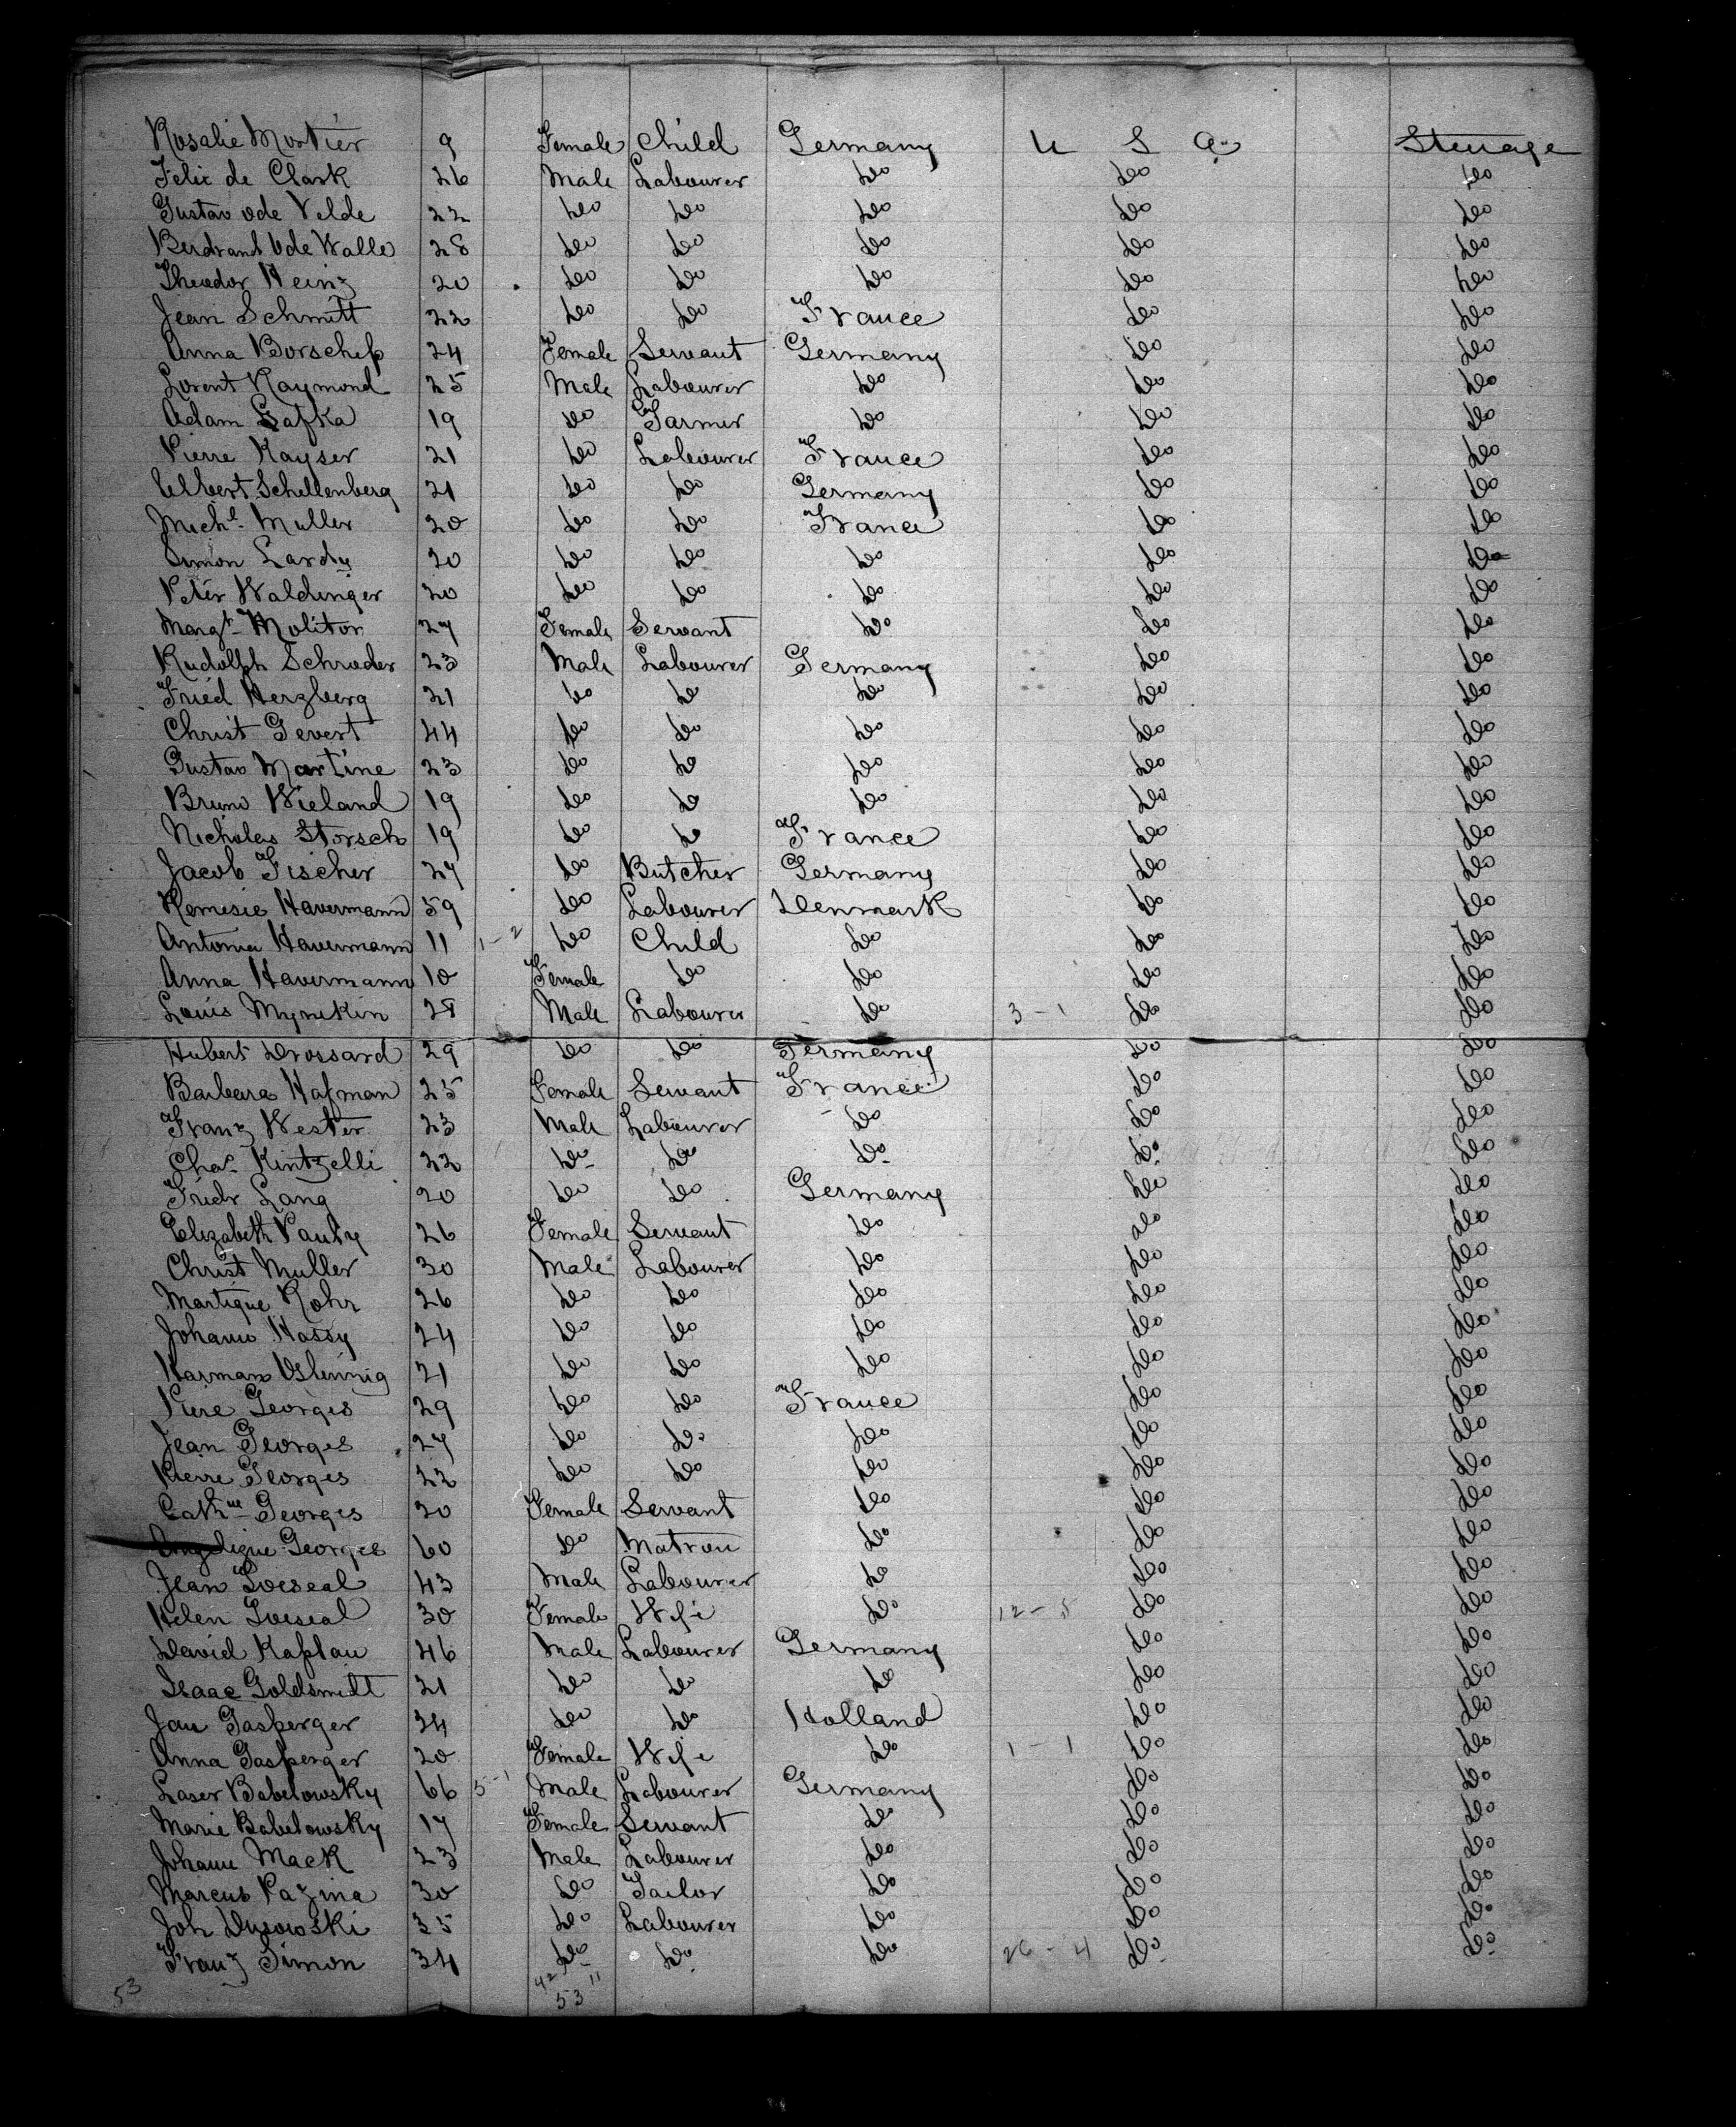 Rosalie Mortier 9 Female Child Germany U S a Steerage
Felix de Clark 26 Male Labourer Do Do Do
Gustav vde Velde 22 Do Do Do Do Do
Berdrand Vde Walle 28 Do Do Do Do Do
Theodor Heinz 20 Do Do Do Do Do
Jean Schmitt 22 Do Do France Do Do
Anna Borschep 24 Female Servant Germany Do Do
Lorent Raymond 25 Male Labourer Do Do Do
Adam Zafka 19 Do Farmer Do Do Do
Pierre Kayser 21 Do Labourer France Do Do
Elbert Schellenberg 21 Do Do Germany Do Do
Michl Muller 20 Do Do France Do Do
Amon Lardy 20 Do Do Do Do Do
Peter Waldinger 20 Do Do Do Do Do
Margt Molitor 27 Female Servant Do Do Do
Rudolph Schroder 23 Male Labourer Germany Do Do
Fried Herzberg 21 Do Do Do Do Do
Christ Gevert 44 Do Do Do Do Do
Gustav Martine 23 Do Do Do Do Do
Bruno Wieland 19 Do Do Do Do Do
Nicholas Storsch 19 Do Do France Do Do
Jacob Fischer 27 Do Butcher Germany Do Do
Remesie Havermann 59 Do Labourer Denmark Do Do
Antonia Havermann 11 1-2 Do Child Do Do Do
Anna Havermann 10 Female Do Do Do Do
Louis Mynekin 28 Male Labourer Do 3-1 Do Do
Hubert Drossard 29 Do Do Germany Do Do
Barbara Hafman 25 Female Servant France Do Do
Franz Wester 23 Male Labourer Do Do Do
Chas Kintzelli 22 Do Do Do Do Do
Friedr Lang 20 Do Do Germany Do Do
Elizabeth Pauly 26 Female Servant Do Do Do
Christ Muller 30 Male Labourer Do Do Do
Martique Rohr 26 Do Do Do Do Do
Johann Hassy 24 Do Do Do Do Do
Harmann 21 Do Do Do Do Do
Piere Georges 29 Do Do France Do Do
Jean Georges 27 Do Do Do Do Do
Pierre Georges 22 Do Do Do Do Do
Cathne Georges 20 Female Servant Do Do Do
Angelique Georges 60 Do Matron Do Do Do
Jean Loeseal 43 Male Labourer Do Do Do
Helen Loeseal 30 Female Wife Do 12-5 Do Do
David Kaplau 46 Male Labourer Germany Do Do
Isaac Goldsmitt 21 Do Do Do Do Do
Jan Gasperger 34 Do Do Holland Do Do
Anna Gasperger 20 Female Wife Do 1-1 Do Do
Laser Babelowsky 66 5-1 Male Labourer Germany Do Do
Marie Babelowsky 17 Female Servant Do Do Do
Johann Mack 23 Male Labourer Do Do Do
Marcus Pazina 30 Do Tailor Do Do Do
Joh Dusowski 35 Do Labourer Do Do Do
Franz Simon 34 Do Do Do 26-4 Do Do
53 42 11
53